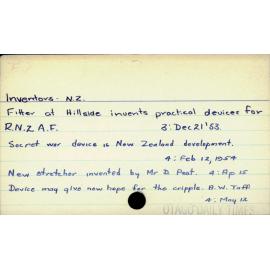 Inventors - N.Z.
Fitter at Hillside invents practical devices for
R.N.Z.A.F. 3: Dec 21 '53.
Secret war device is New Zealand development.
4: Feb 12, 1954
New stretcher invented by Mr D. Peat. 4: Ap 15
Device may give new hope for the cripple. B.W. Taff
4: May 12
OTAGO DAILY TIMES